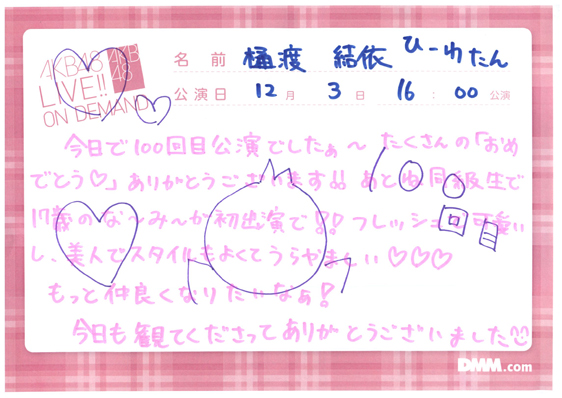 AKB48
LIVE!!
ON DEMAND
AKB
48
名 前 樋渡 結依 ひーわたん
公演日 12 月 3 日 16 : 00 公演
今日で100回目公演でしたぁ~ たくさんの「おめ
でとう♡」ありがとうございます!! あとね同級生で
17歳のな~み~が初出演で!!! フレッシュで可愛い
し、美人でスタイルもよくてうらやましい♡♡♡
もっと仲良くなりたいなぁ!
今日も観てくださってありがとうございました
100
回
目
DMM.com